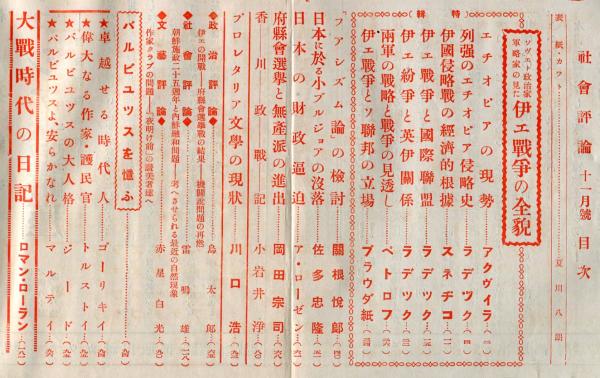 社會評論 十一月號 目次
表紙・カット……夏川八朗
特輯
ソヴエト政治家
軍略家の見た
伊エ戰爭の全貌
エチオピアの現勢……アクヴイラ…(四)
列强のエチオピア侵略史……ラデツク…
伊國侵略戰の經濟的根據……スネチコ…
伊エ戰爭と國際聯盟……ラデツク…
伊エ紛爭と英伊關係……ラデツク…
兩軍の戰略と戰爭の見透し……ペトロフ…
伊エ戰爭とソ聯邦の立場……プラウダ紙…
「フアシズム論」の檢討……關根悅郎…
日本に於る小ブルジヨアの沒落……佐多忠隆…
日本の財政逼迫……ア・ローゼン…
府縣會選擧と無產派の進出……岡田宗司…
香川政戰記……小岩井淨…
プロレタリア文學の現狀……川口浩…
◆政治評論◆……鳥太郎…
伊エの開戰――府縣會選擧戰の結果――機關說問題の再燃
◆社會評論◆……雷鳴雄…
朝鮮施政二十五週年と內鮮融和問題――考へさせられる最近の自然現象
◆文藝評論◆……赤星白光…
作家クラブの問題――「夜明け前」の讚美者達へ
バルビユツスを憶ふ
★卓越せる時代人……ゴーリキイ…
★偉大なる作家・護民官……トルストイ…
★バルビユツスの大人格……ジード…
★バルビユツスよ、安らかなれ……マルテイ…
大戰時代の日記……ロマン・ローラン…